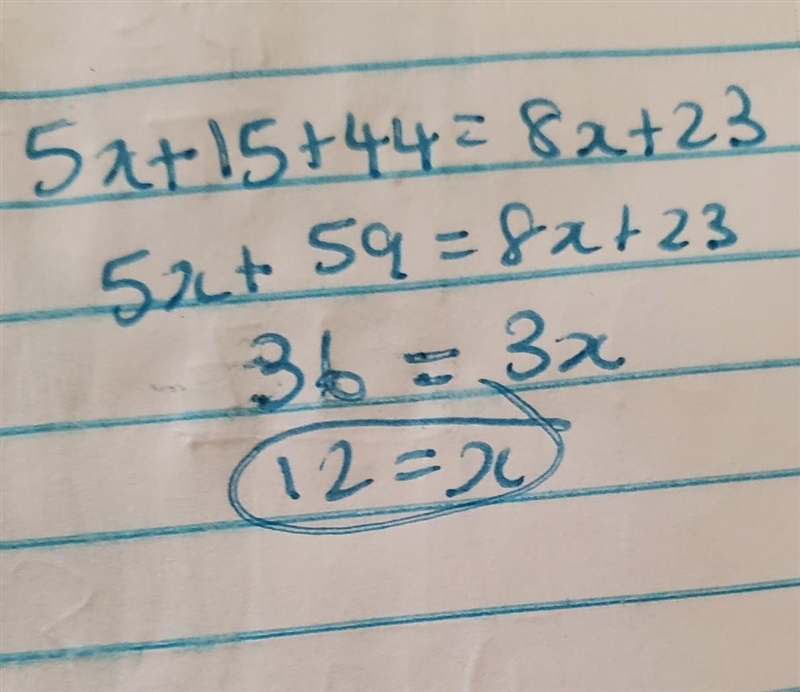 5x+15+44=8x+23
5x+59=8x+23
36=3x
12=x